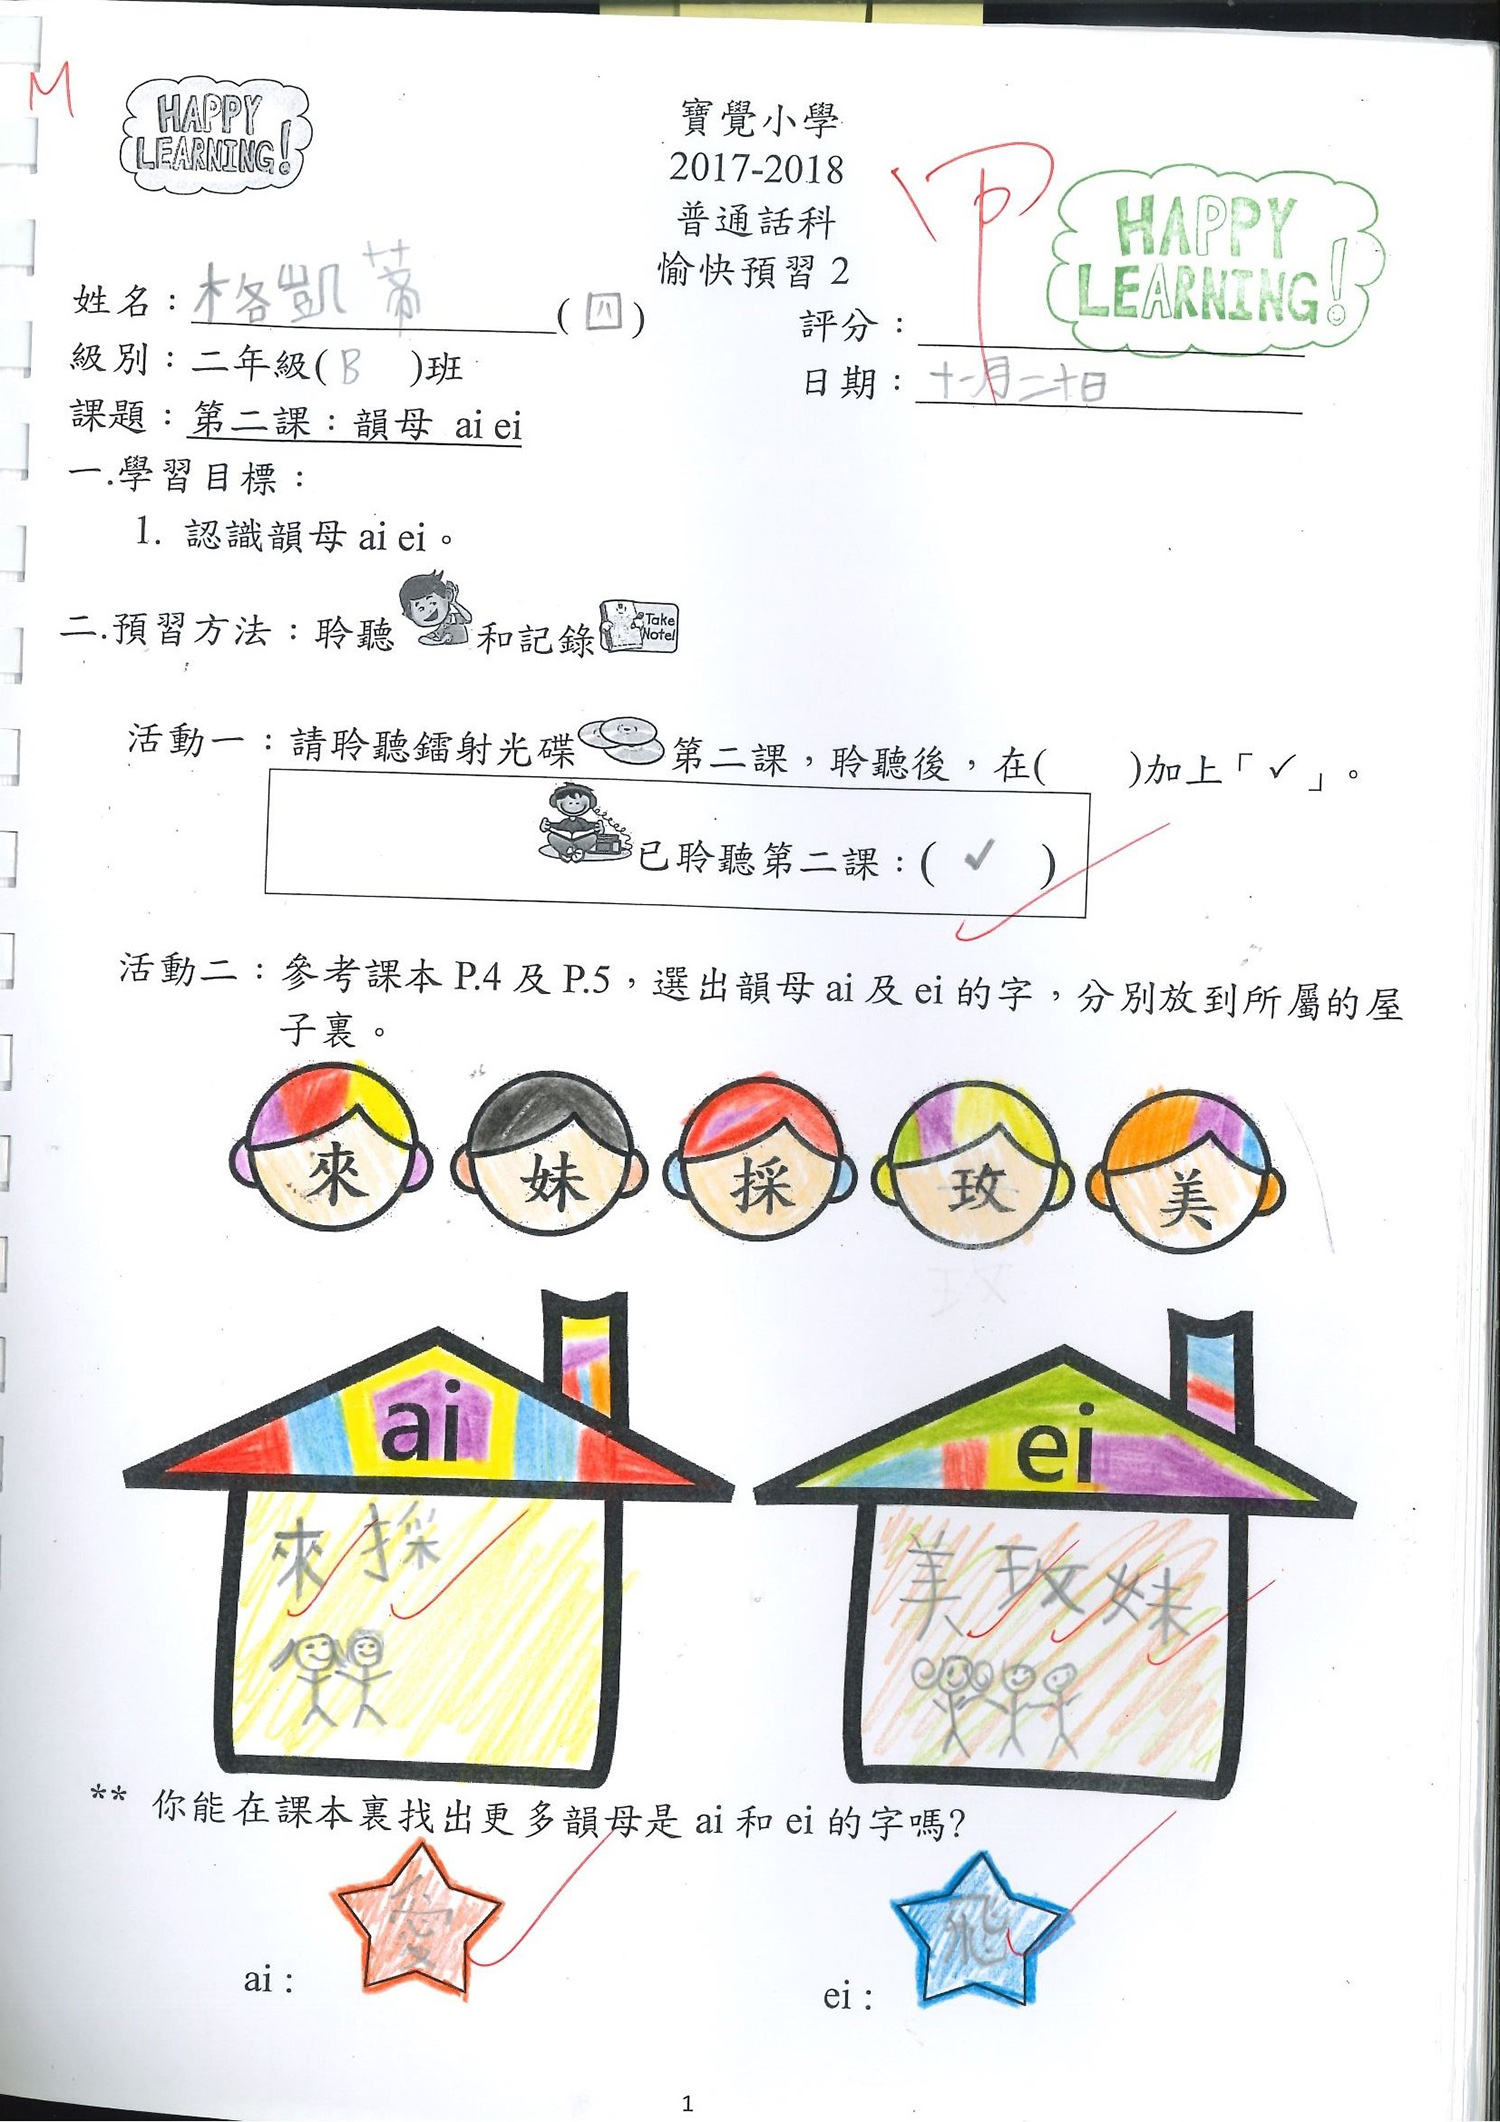 M
HAPPY
LEARNING!
寶覺小學
2017-2018
普通話科
愉快預習 2
甲
HAPPY
LEARNING!
姓名：格凱蒂(四)
評分：
級別：二年級(B)班
日期：十一月二十日
課題：第二課：韻母 ai ei
一.學習目標：
1. 認識韻母 ai ei。
二.預習方法：聆聽和記錄
Take
Note!
活動一：請聆聽鐳射光碟第二課，聆聽後，在( )加上「✓」。
已聆聽第二課：( ✓ )
活動二：參考課本 P.4 及 P.5，選出韻母 ai 及 ei 的字，分別放到所屬的屋
子裏。
來 妹 採 玫 美
ai ei
來 採 美 玫 妹
** 你能在課本裏找出更多韻母是 ai 和 ei 的字嗎?
ai：愛 ei：飛
1